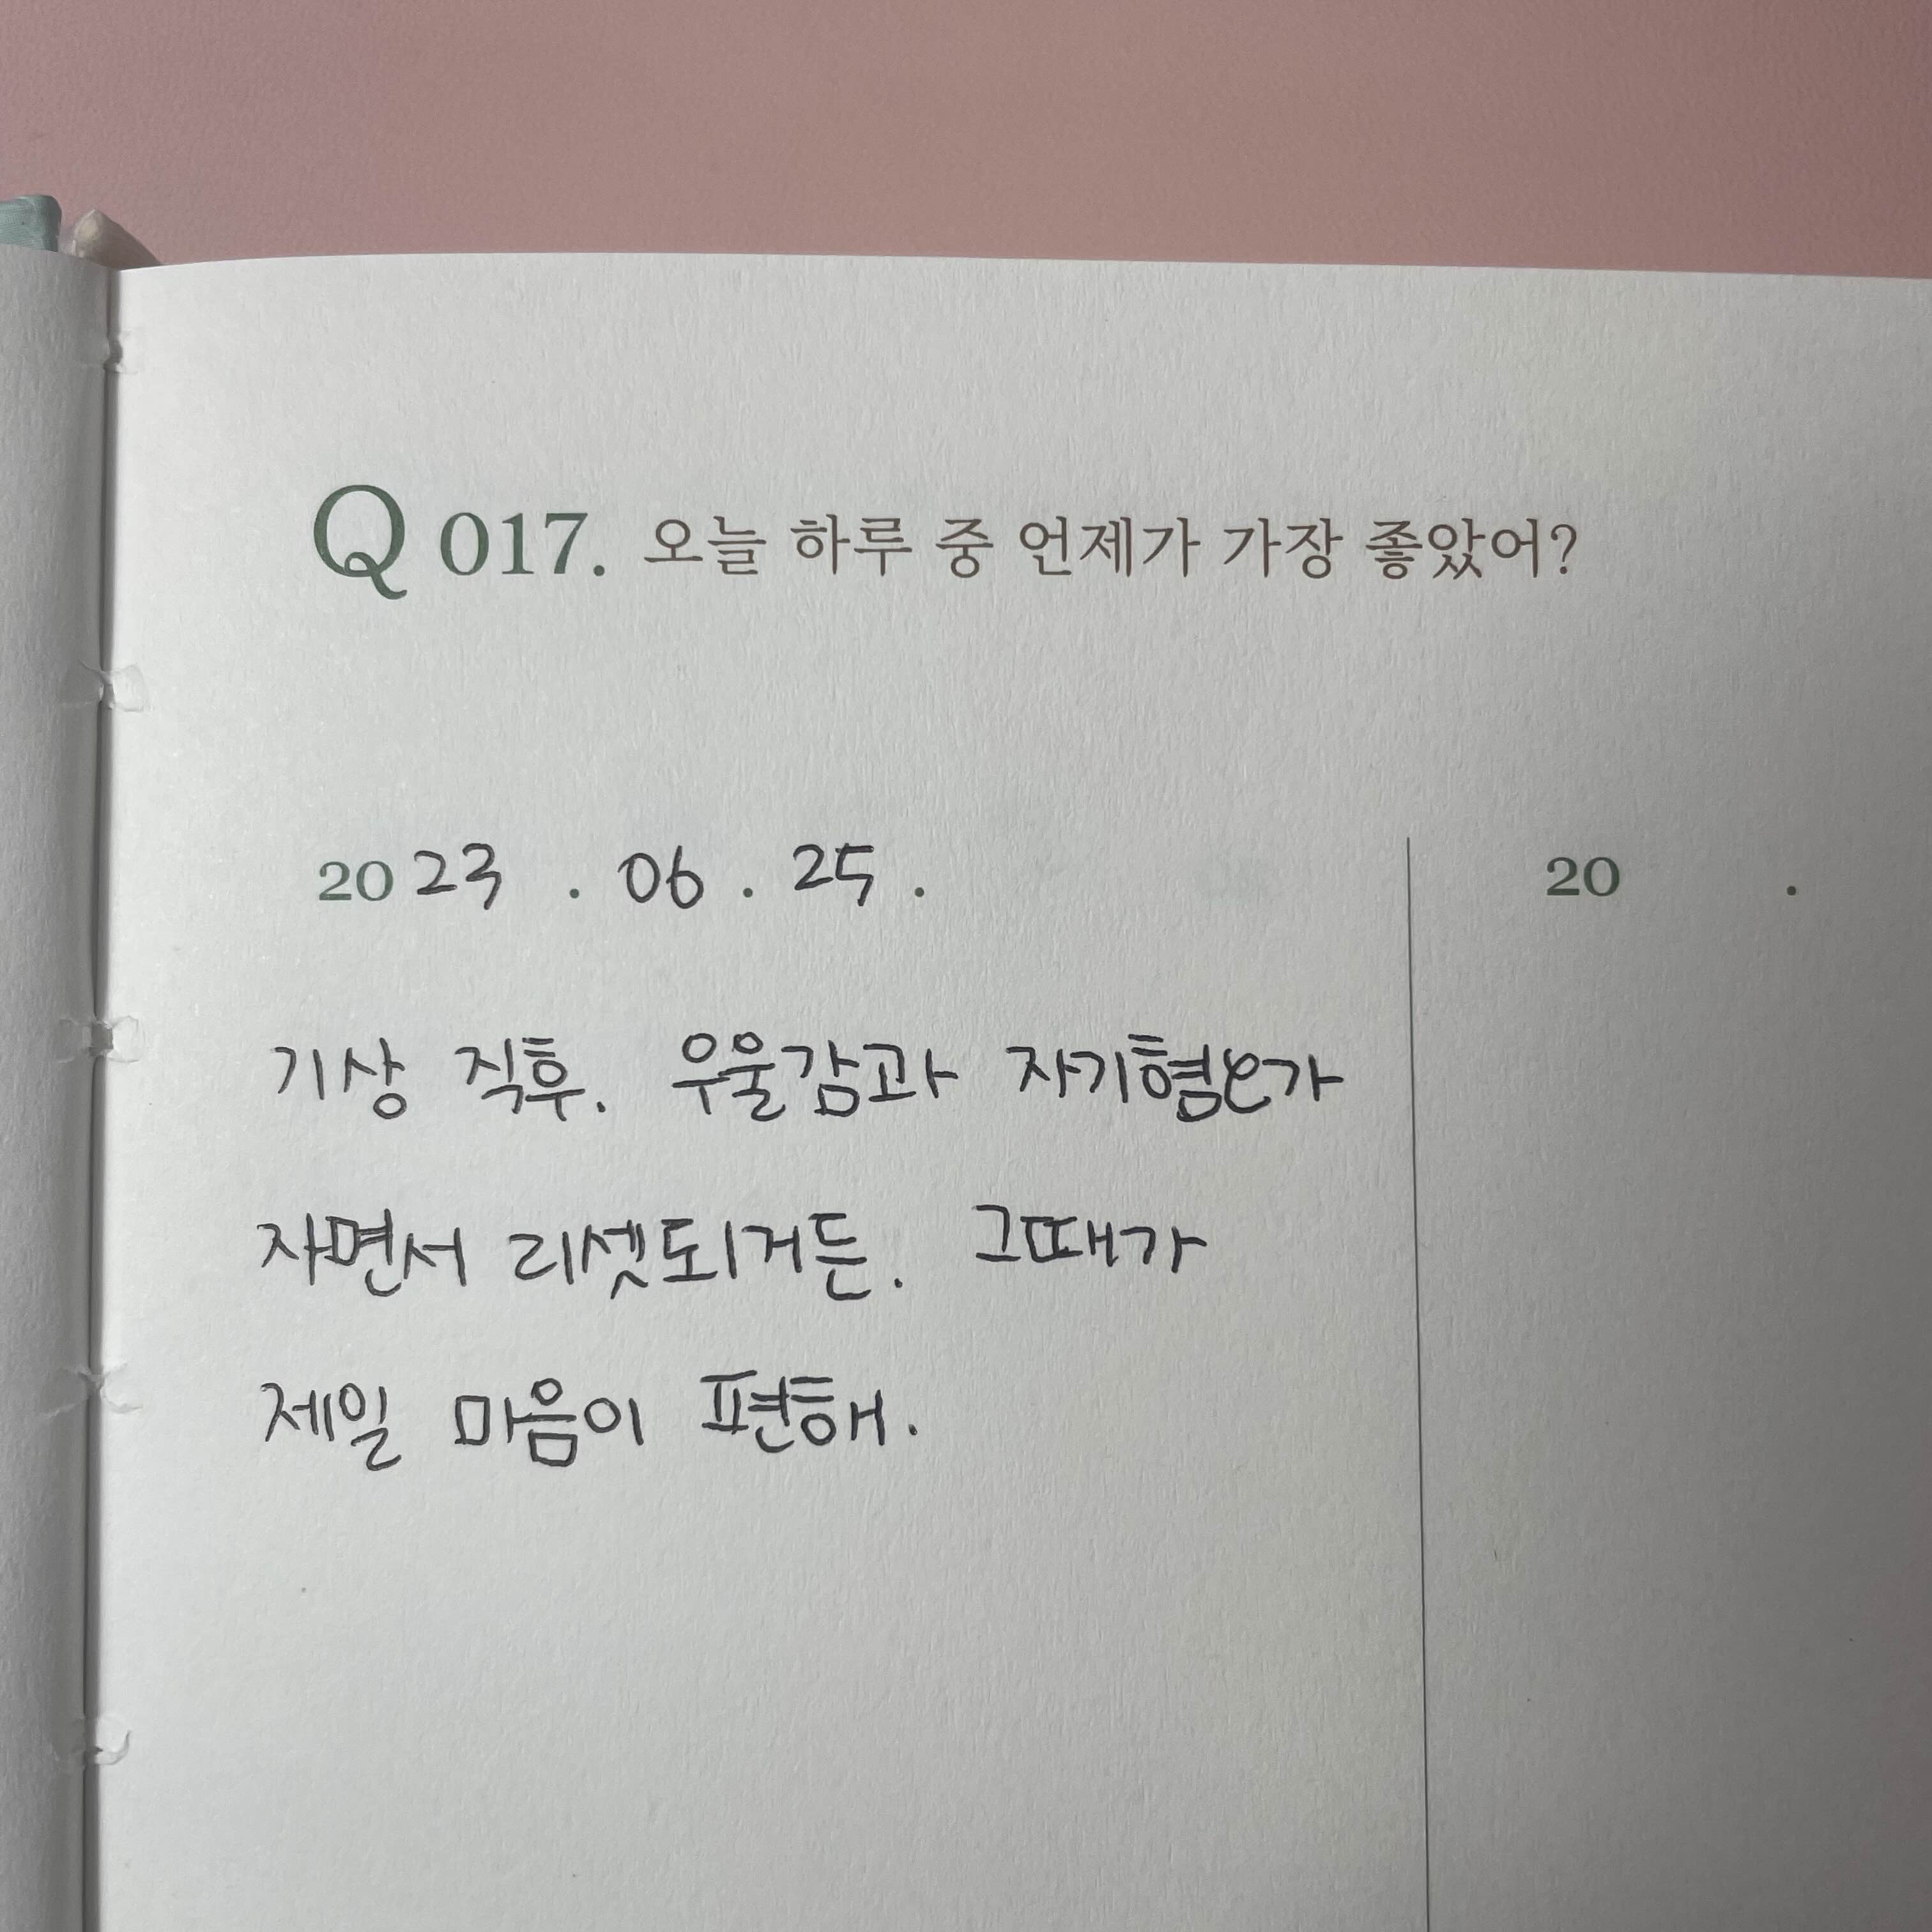 Q 017. 오늘 하루 중 언제가 가장 좋았어?
2023 . 06 . 25 .
20 .
기상 직후. 우울감과 자기혐오가
자면서 리셋되거든. 그때가
제일 마음이 편해.